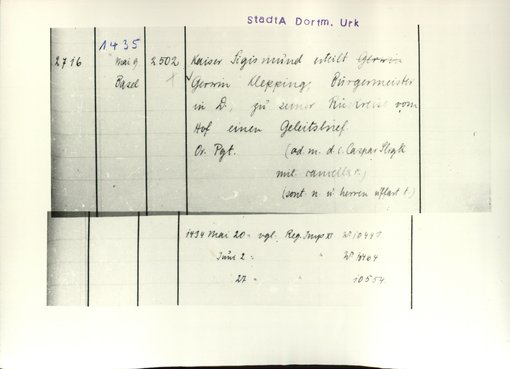 StadtA Dortm. Urk
1435
2716 Mai 9 2502 Kaiser Sigismund erteilt Gerwin
Basel Gerwin Klepping, Bürgermeister
in D., zu seiner Rückreise vom
Hof einen Geleitsbrief.
Or. Pgt. (ad. m. d. i. Caspar Sligk
mit
(sont n u herren
1434 Mai 20 - vgl. Reg. Imp XI
Juni 2 -
27 " 10554